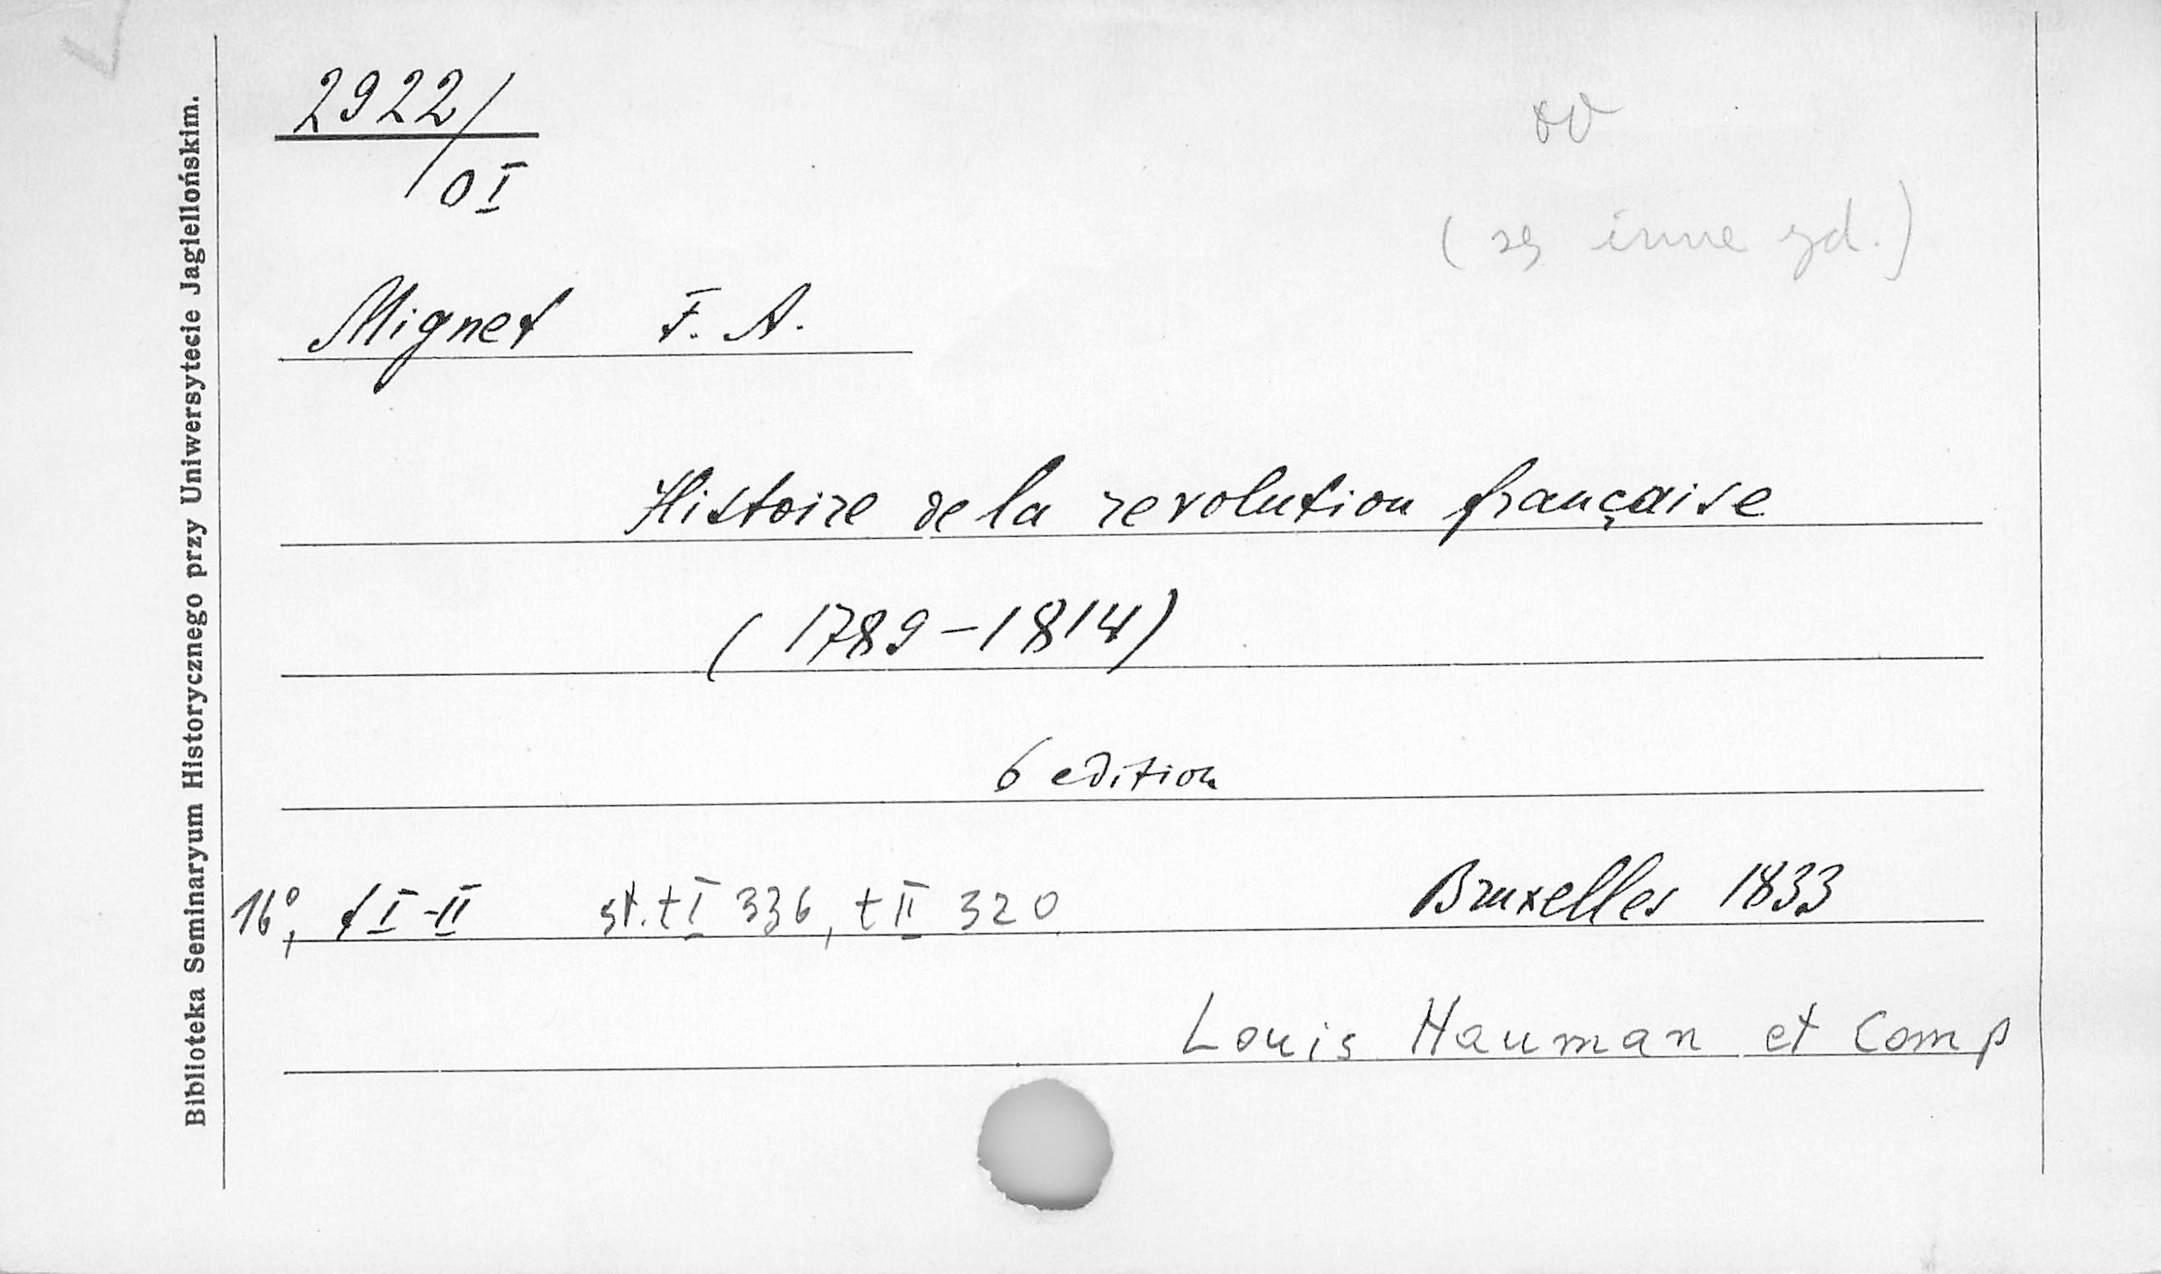 Biblioteka Seminaryum Historycznego przy Uniwersytecie Jagiellońskim.
2922/
OI
Mignet F. A.
Histoire de la revolution française
(1789-1814)
6 edition
16°, t I-II st. t I 336, t II 320 Bruxelles 1833
Louis Hauman et Comp
(są inne yd.)